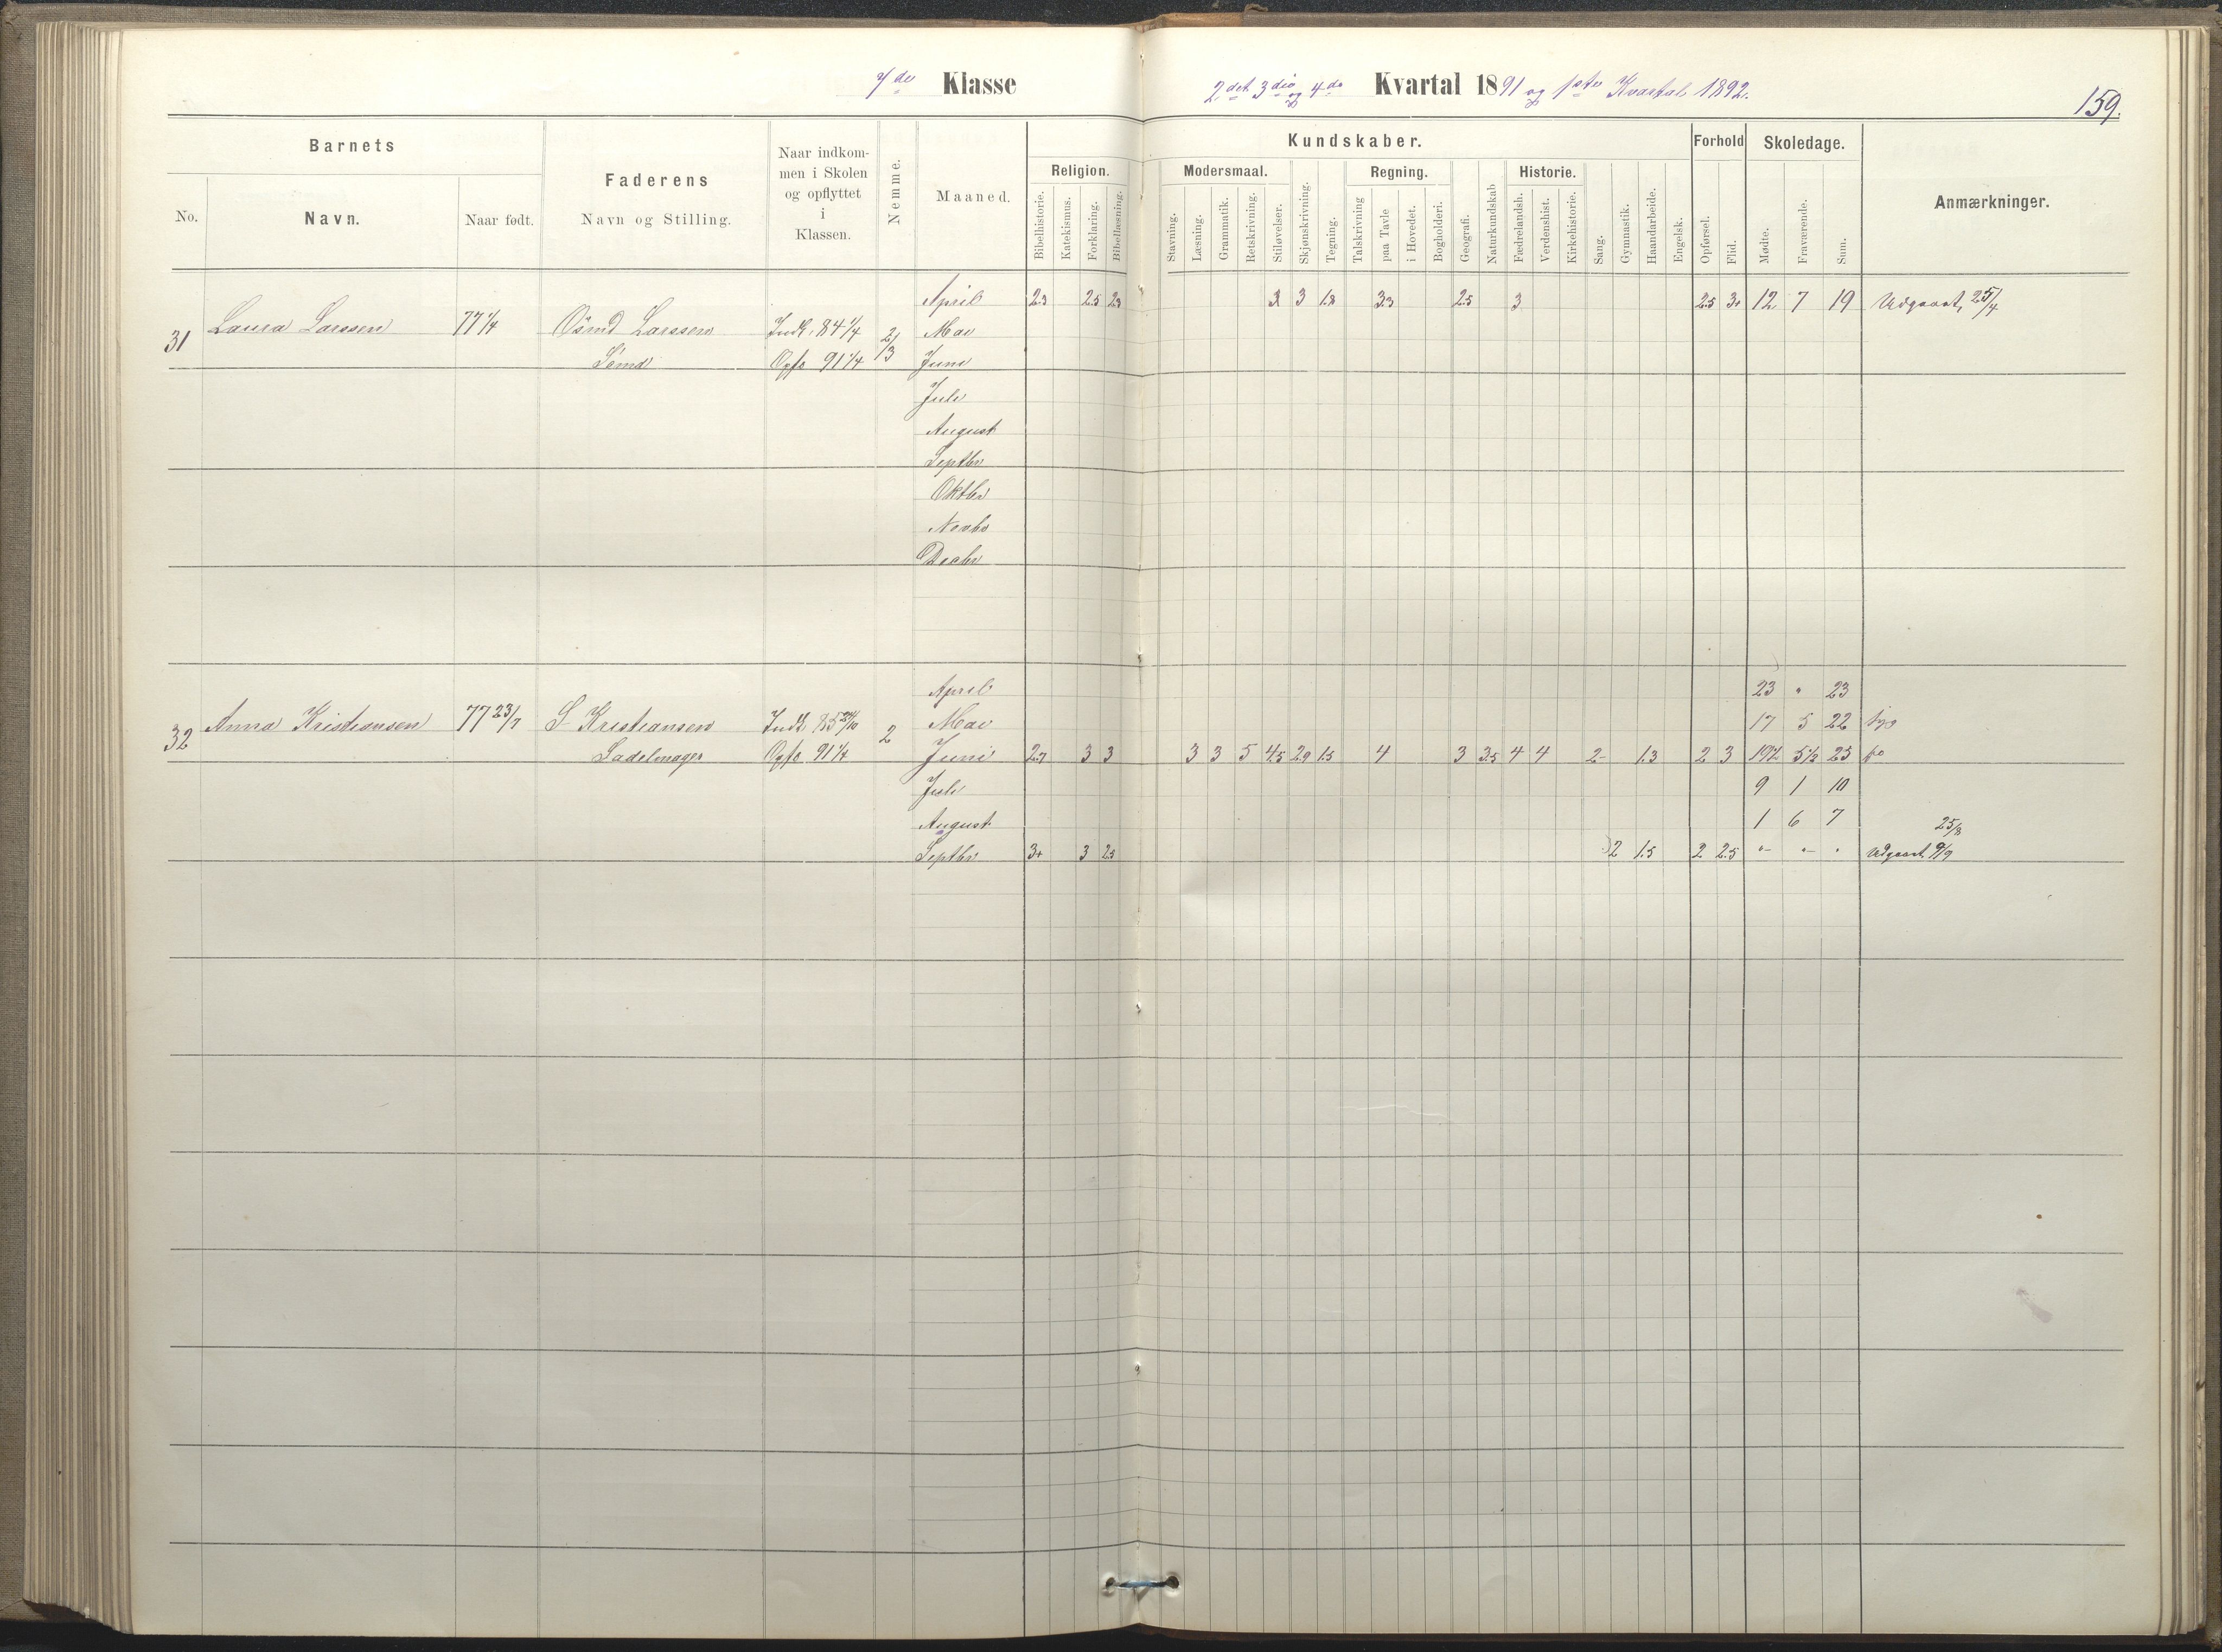 7de Klasse 2det 3die og 4de Kvartal 1891 og 1ste Kvartal 1892.
159.
Barnets Kundskaber. Forhold Skoledage.
No. Navn. Naar født. Faderens Navn og Stilling. Naar indkommen i Skolen og opflyttet i Klassen. Nemme. Maaned. Religion. Modersmaal. Regning. Historie. Anmærkninger.
Bibelhistorie. Katekismus. Forklaring. Bibellæsning. Stavning. Læsning. Grammatik. Retskrivning. Stiløvelser. Skjønskrivning. Tegning. Talskrivning paa Tavle i Hovedet. Bogholderi. Geografi. Naturkundskab Fædrelandsh. Verdenshist. Kirkehistorie. Sang. Gymnastik. Haandarbeide. Engelsk. Opførsel. Flid. Mødte. Fraværende. Sum.
April 2.3 2.5 2.3 3 3 1.8 3.3 2.5 3 2.5 3. 12 7 19 Udgaaet, 25/4
31 Laura Larssen 77 1/4 Larssen Indk. 84 1/4 2/3 Mai
Sømd Opfl 91 1/4 Juni
Juli
August
Septbr
Oktbr
Novbr
Decbr
April 23 " 23
32 Anna Kristiansen 77 23/7 S. Kristiansen Indk 85 2 Mai 17 5 22 syg
Sadelmager Opfl 91 1/4 Juni 2.7 3 3 3 3 5 4.5 2.9 1.5 4 3 3.5 4 4 2- 1.3 2 3 19½ 5½ 25
Juli 9 1 10
August 1 6 7
25/8
Septbr 3+ 3 2.5 2 1.5 2 2.5 " " " Udgaaet 9/9